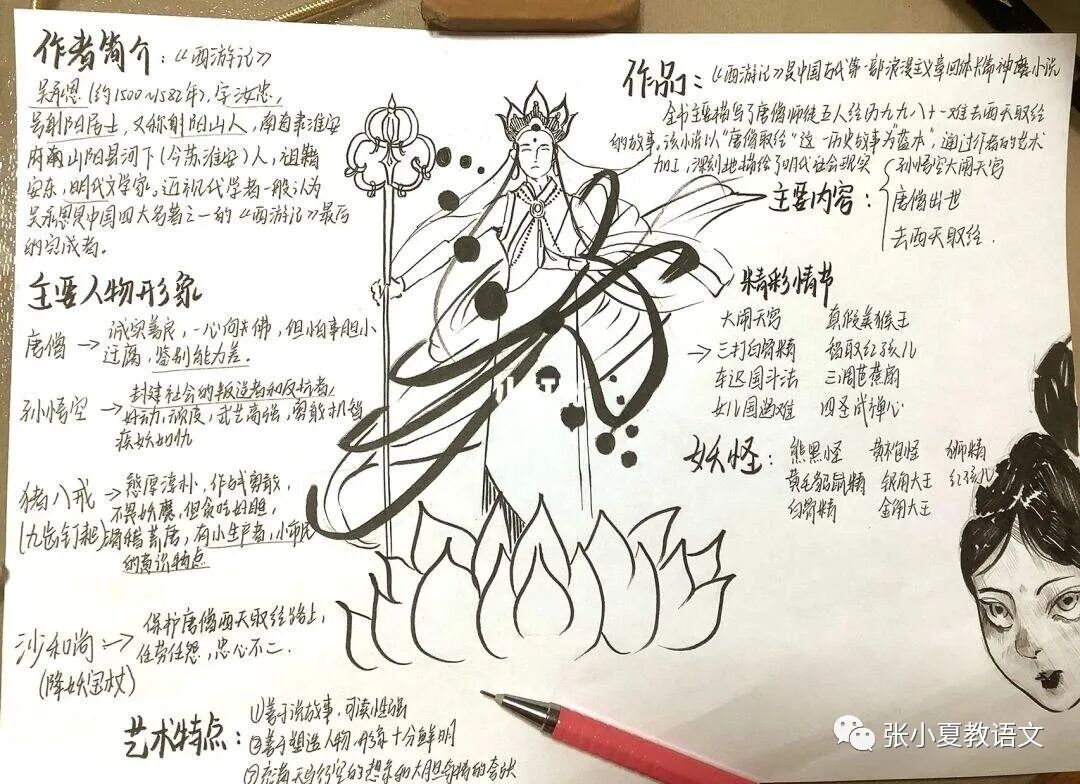 作者简介：《西游记》
吴承恩(约1500~1582年)，字汝忠，
号射阳居士，又称射阳山人，南直隶淮安
府山阳县河下(今苏淮安)人，祖籍
安东，明代文学家。近现代学者一般认为
吴承恩是中国四大名著之一的《西游记》最后
的完成者。
主要人物形象
唐僧→诚实善良，一心向佛，但怕事胆小
迂腐，鉴别能力差。
孙悟空→封建社会的叛逆者和反抗者，
好动，顽皮，武艺高强，勇敢机智
疾妖如仇
猪八戒→憨厚淳朴，作战勇敢，
(九齿钉耙)不畏妖魔，但贪吃好胆，
有小生产者，小市民
的意识特点
沙和尚→保护唐僧西天取经路上，
任劳任怨，忠心不二.
(降妖宝杖)
艺术特点：①善于说故事，可读性强
②善于塑造人物形象十分鲜明
作品：《西游记》是中国古代第一部浪漫主义章回体长篇神魔小说
全书主要描写了唐僧师徒五人经历九九八十一难去西天取经
的故事。该小说以"唐僧取经"这一历史故事为蓝本"，通过作者的艺术
加工，深刻地描绘了明代社会现实
主要内容：
孙悟空大闹天宫
唐僧出世
去西天取经.
精彩情节
大闹天宫 真假美猴王
→三打白骨精 智取红孩儿
车迟国斗法 三调芭蕉扇
女儿国遇难 四圣试禅心
妖怪：熊黑怪 黄袍怪 狮精
黄毛貂鼠精 银角大王 红孩儿
白骨精 金角大王
张小夏教语文